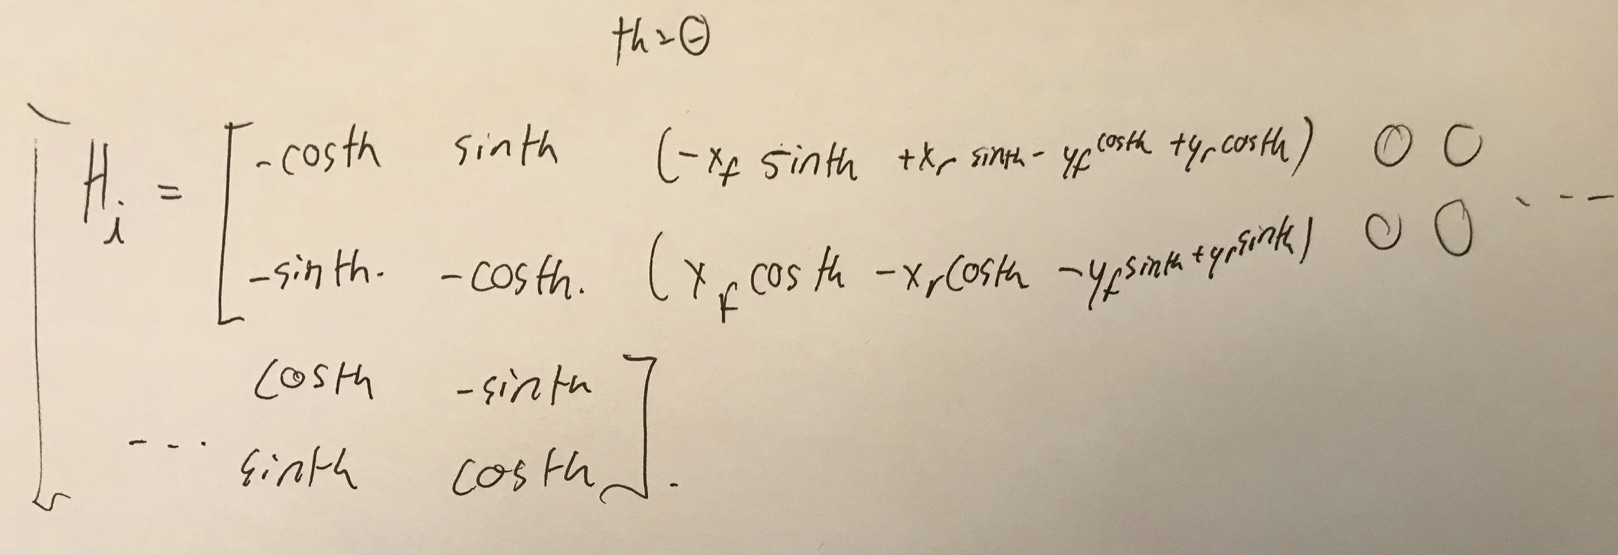 th = θ
H_i = [ -costh sinth (-x_f sinth +x_r sinth - y_f costh +y_r costh) 0 0
-sinth. -costh. (x_f costh -x_r costh -y_f sinth +y_r sinth) 0 0 ---
costh -sinth
--- sinth costh ].